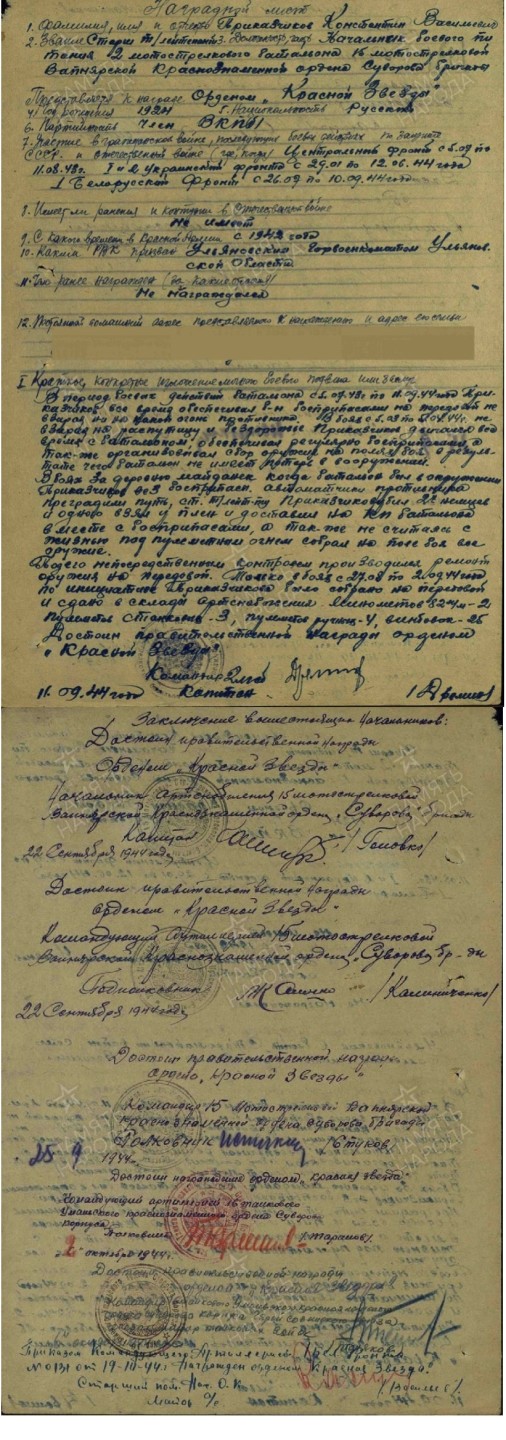 Наградной лист
1. Фамилия, имя и отчество Приказчиков Константин Васильевич
2. Звание Старш. т/лейтенант 3. Должность, часть Начальник боевого пи
тания 2 мотострелкового батальона 15 мотострелковой
Вапнярской Краснознаменной ордена Суворова бригады
Представляется к награде Орденом „Красной Звезды"
4. Год рождения 1924 5. Национальность Русский
6. Партийность Член ВКП/б/
7. Участие в гражданской войне, последующих боевых действиях по защите
СССР и отечественной войне (где, когда) Центральный фронт с 5.07 по
11.08.43г. I и 2 Украинский фронт с 29.01 по 12.06.44 года
I Белорусский Фронт с 26.07 по 10.09.44 года
8. Имеет ли ранения и контузии в отечественной войне
Не имеет
9. С какого времени в Красной Армии с 1942 года
10. Каким РВК призван Ульяновским Горвоенкоматом Ульянов
ской Области
11. Чем ранее награжден (за какие отличия)
Не награждался
12. Постоянный домашний адрес представляемого к награждению и адрес его семьи
I Краткое, конкретное изложение личного боевого подвига или заслуг
В период боевых действий батальона с по 11.09.44 года При
казчиков все время обеспечивал б-н боеприпасами на передовой не
взирая на огонь противника. В боях с
взирая на распутицу и бездорожье Приказчиков двигался всё
время с батальоном, обеспечивая регулярно боеприпасами, а
так-же организовывал сбор оружия на поле боя в резуль
тате чего батальон не имеет потерь в вооружении.
В боях за деревню майданек когда батальон был в окружении
Приказчиков вёз боеприпасы, автоматчики противника
преградили путь, ст. т/лейт-т Приказчиков убил 2х немцев
и одного взял в плен и доставил на КП батальона
вместе с боеприпасами, а так же не считаясь с
жизнью под пулеметным огнем собрал на поле боя все
оружие.
Под его непосредственным контролем производился ремонт
оружия на передовой. Только в боях с 27.08 по 2.09.44 года
по инициативе Приказчикова было собрано на передовой
и сдано в склады Артснабжения минометов 82 м/м-2
пулеметов станковых-3, пулеметов ручных-4, винтовок-25
Достоин правительственной награды орденом
„Красной Звезды"
Командир 2 мсб
11.09.44 года Капитан
Заключение вышестоящих начальников:
Достоин правительственной награды
Орденом „Красной Звезды"
Начальник Артснабжения 15 мотострелковой
Вапнярской Краснознаменной ордена „Суворова" бригады
Капитан /Головко/
22 Сентября 1944 года
Достоин правительственной награды
орденом „Красной Звезды"
Командующий Артиллерией 15 мотострелковой
Вапнярской Краснознаменной ордена „Суворова" бр-ды
Подполковник /Калиниченко/
22 Сентября 1944 года
Достоин правительственной награды
ордена „Красной Звезды"
Командир 15 Мотострелковой Вапнярской
Краснознаменной ордена Суворова бригады
Полковник
25 9 1944г.
Достоин награждения орденом „Красная Звезда"
Командующий артиллерией 16 танкового
Уманского краснознаменного ордена Суворова
корпуса
Полковник /Тарашов/
"2" октября 1944г.
Достоин правительственной награды
орденом „Красная Звезда"
Командир
Приказом Командующего Артиллерией
№ 013/ от 19-10-44г. Награжден орденом „Красная Звезда"
Старший пом. Нач. О.К.
Майор а/с /Васильев/